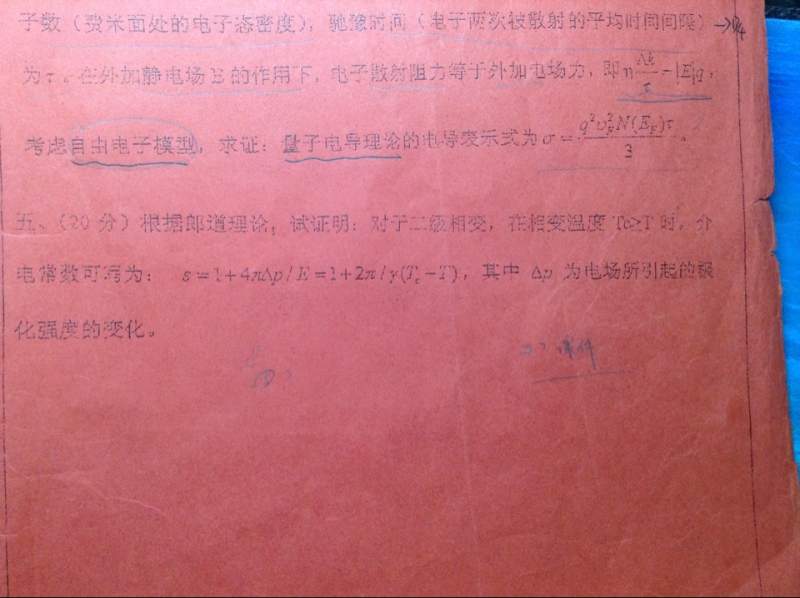 子数（费米面处的电子态密度），弛豫时间（电子两次被散射的平均时间间隔）→
为τ。在外加静电场E的作用下，电子散射阻力等于外加电场力，即 ħ Δk/τ = |E|q，
考虑自由电子模型，求证：量子电导理论的电导表示式为 σ = q²υ_F²N(E_F)τ/3。
五、（20 分）根据郎道理论，试证明：对于二级相变，在相变温度 Tc≥T 时，介
电常数可写为： ε=1+4πΔp/E=1+2π/γ(T_c−T)，其中 Δp 为电场所引起的极
化强度的变化。
课件